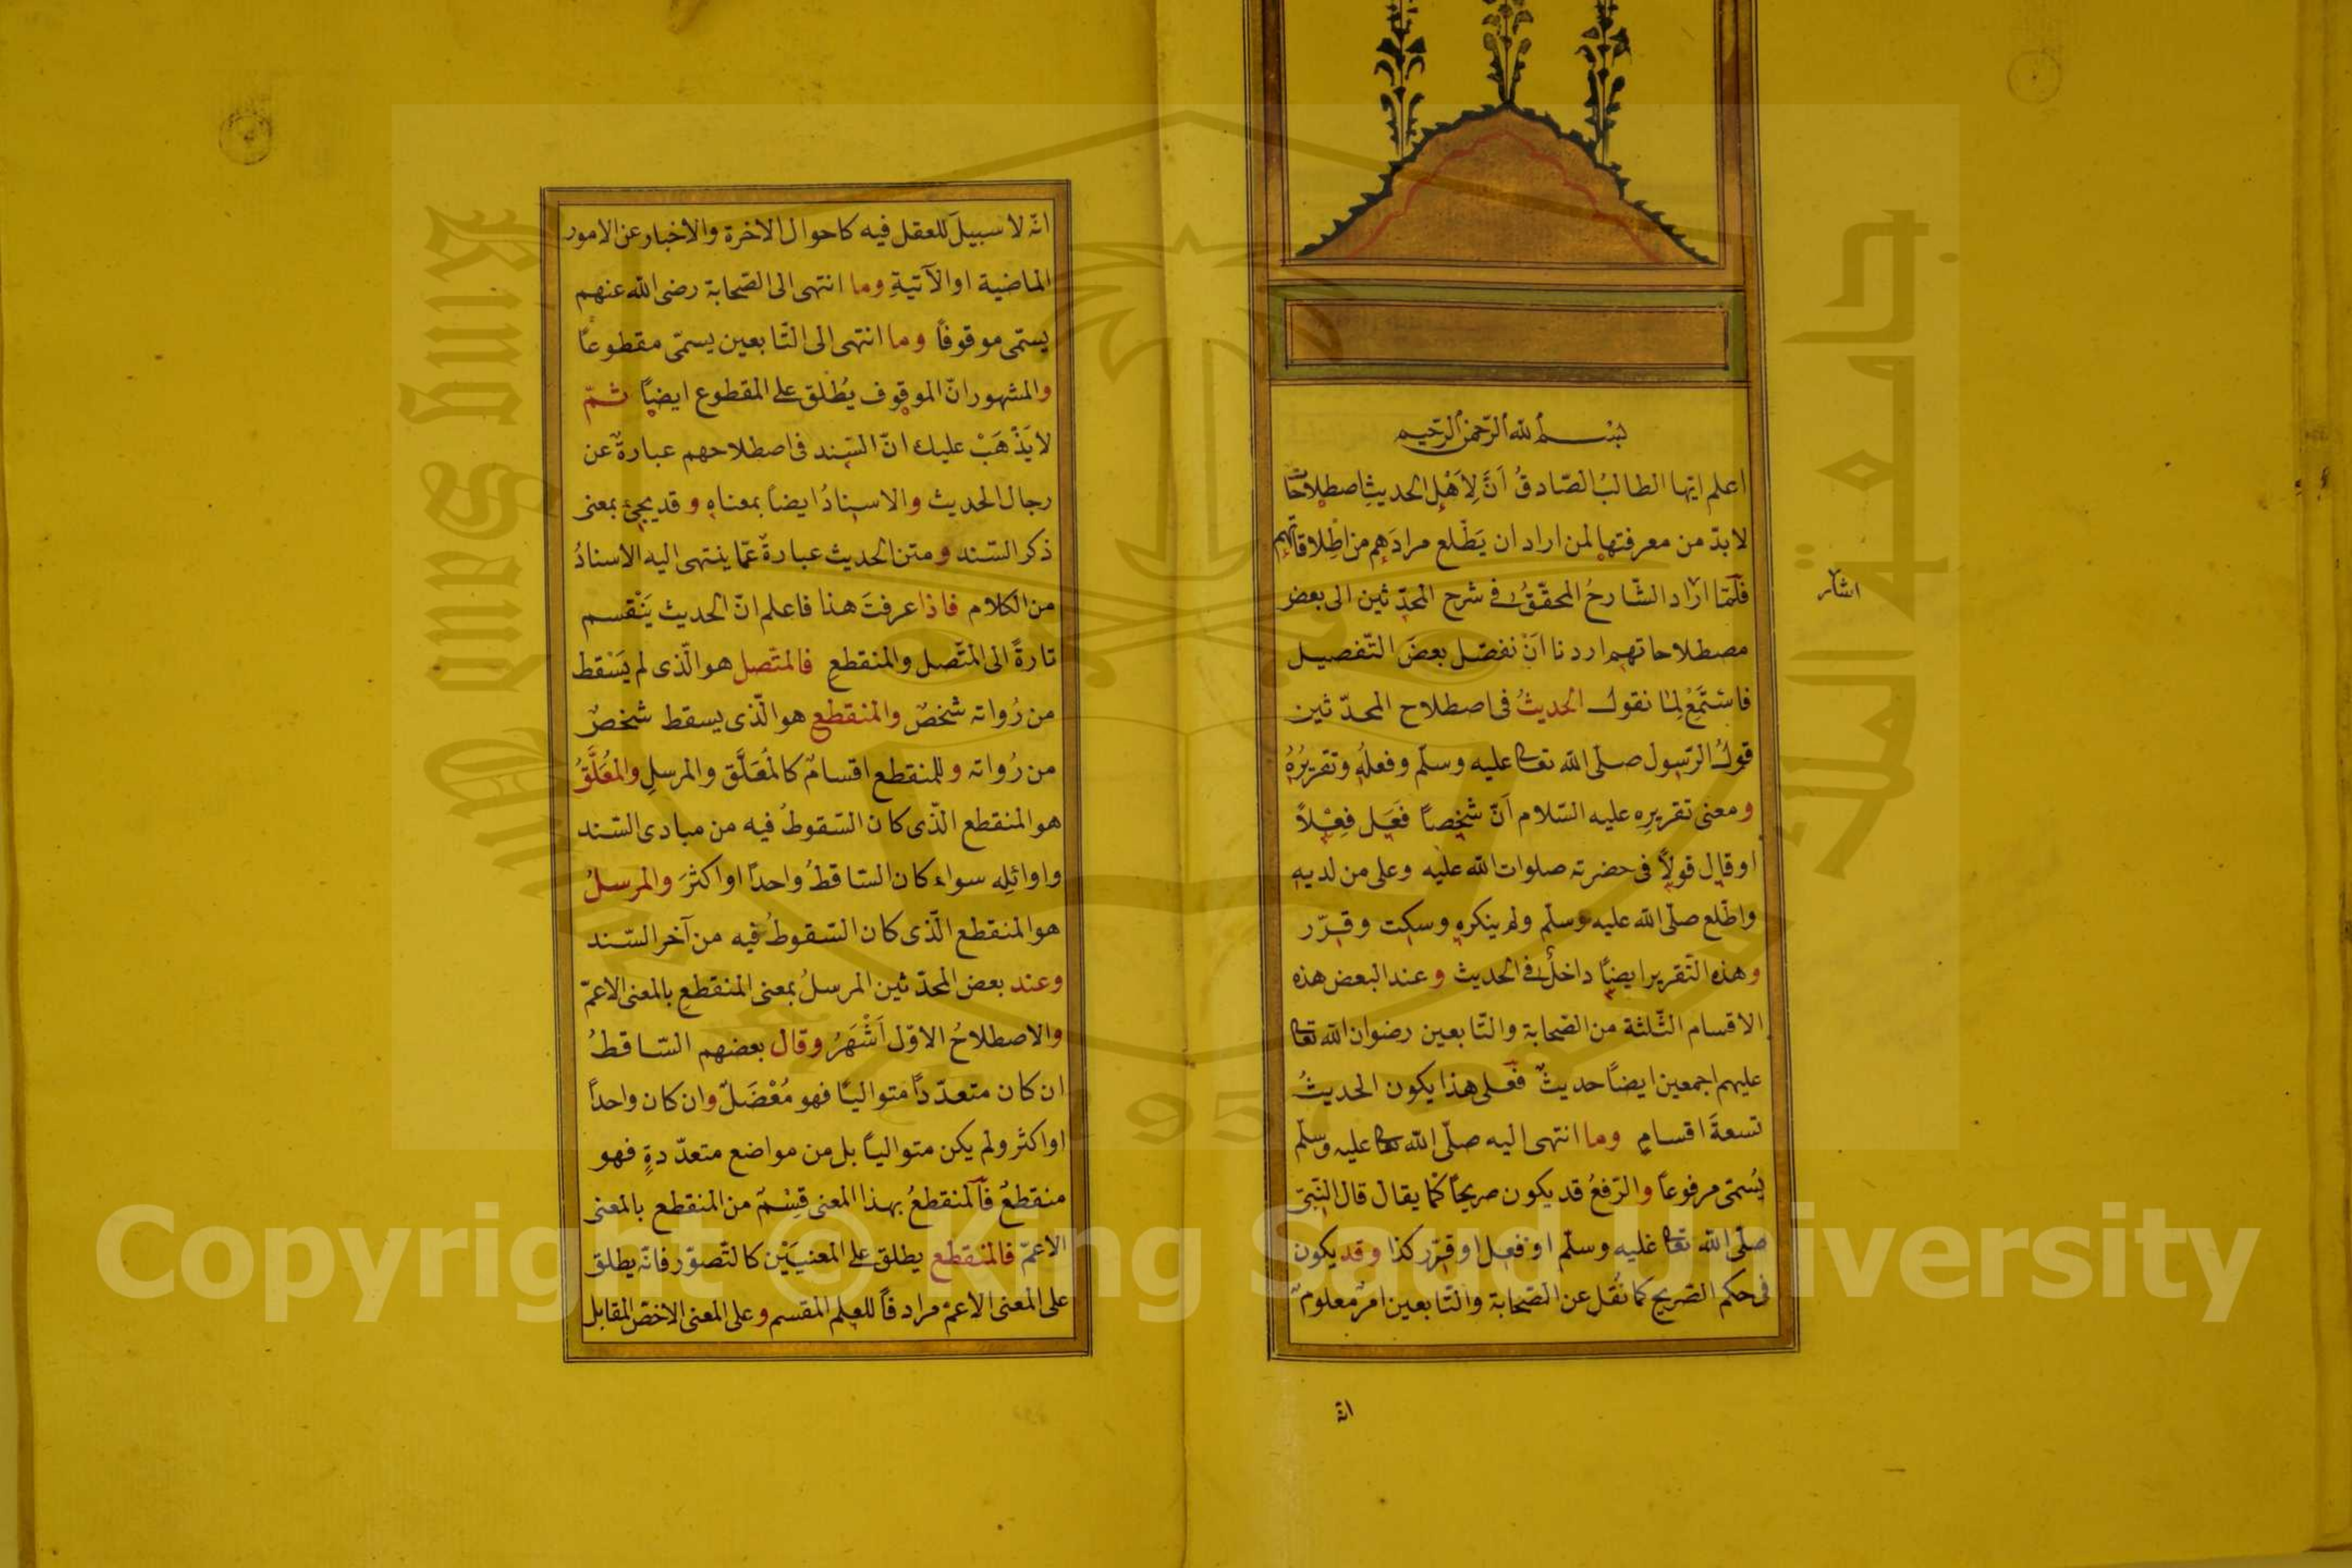 بسم الله الرحمن الرحيم
اعلم ايّها الطالبُ الصّادقُ اَنَّ لِاَهْلِ الحديثِ اصطلاحًا
لا بدّ من معرفتها لمن اراد ان يَطّلع مرادَهم من اطلاقاتهم
فلمّا اراد الشّارحُ المحقّقُ فى شرح المحدّثين الى بعض
اشار
مصطلاحاتهم اردنا اَنْ نفصّل بعضَ التّفصيل
فاسْتَمِعْ لِمَا نقول الحديثُ فى اصطلاح المحدّثين
قولُ الرّسول صلّى الله تعا عليه وسلّم وفعلُه وتقريرُهُ
ومعنى تقريرِه عليه السّلام اَنّ شخصاً فَعَل فِعْلاً
او قال قولاً فى حضرته صلوات الله عليه وعلى من لديه
واطّلع صلّى الله عليه وسلّم ولم ينكره وسكت وقرّر
وهذه التّقرير ايضاً داخلٌ فى الحديث وعند البعض هذه
الاقسام الثّلثة من الصّحابة والتّابعين رضوان الله تعا
عليهم اجمعين ايضاً حديثٌ فعلى هذا يكون الحديثُ
تسعةَ اقسامٍ وما انتهى اليه صلّى الله تعا عليه وسلّم
يُسمّى مرفوعاً والرّفعُ قد يكون صريحاً كما يقال قال النّبىّ
صلّى الله تعا عليه وسلّم او فعل او قرّر كذا وقد يكون
فى حكم الصّريح كما نُقل عن الصّحابة والتّابعين امرٌ معلومٌ
انّه
انّه لا سبيلَ للعقل فيه كاحوال الاخرة والاخبار عن الامور
الماضية او الآتيةِ وما انتهى الى الصّحابة رضى الله عنهم
يسمّى موقوفاً وما انتهى الى التّابعين يسمّى مقطوعاً
والمشهور انّ الموقوف يُطْلق على المقطوع ايضاً ثمّ
لا يَذْهَبْ عليك انّ السّند فى اصطلاحهم عبارةٌ عن
رجال الحديث والاسنادُ ايضاً بمعناه وقد يجئ بمعنى
ذكر السّند ومتن الحديث عبارةٌ عمّا ينتهى اليه الاسنادُ
من الكلام فاذا عرفتَ هذا فاعلم انّ الحديث يَنْقسم
تارةً الى المتّصل والمنقطع فالمتّصل هو الّذى لم يَسْقط
من رُواته شخصٌ والمنقطع هو الّذى يسقط شخصٌ
من رُواته وللمنقطع اقسامٌ كالمُعَلَّق والمرسلِ والمُعَلَّقُ
هو المنقطع الّذى كان السّقوطُ فيه من مبادى السّند
واوائلِه سواء كان السّاقطُ واحداً او اكثرَ والمرسلُ
هو المنقطع الّذى كان السّقوطُ فيه من آخر السّند
وعند بعض المحدّثين المرسلُ بمعنى المنقطعِ بالمعنى الاعمّ
والاصطلاحُ الاوّل اَشْهَرُ وقال بعضهم السّاقطُ
ان كان متعدّداً متوالياً فهو مُعْضَلٌ وان كان واحداً
او اكثر ولم يكن متوالياً بل من مواضع متعدّدةٍ فهو
منقطعٌ فالمنقطعُ بهذا المعنى قِسْمٌ من المنقطع بالمعنى
الاعمّ فالمنقطع يطلق على المعنيَيْن كالتّصوّر فانّه يطلق
على المعنى الاعمّ مرادفاً للعلم المقسم وعلى المعنى الاخصّ المقابل
Copyright © King Saud University
King Saud University
جامعة الملك سعود